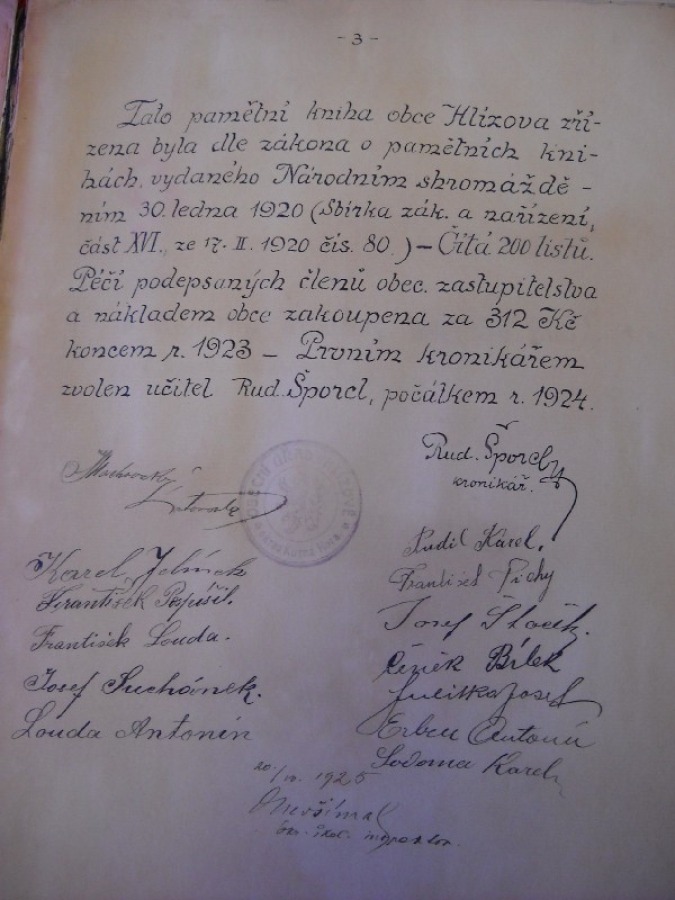 - 3 -
Tato pamětní kniha obce Hlízova zří-
zena byla dle zákona o pamětních kni-
hách, vydaného Národním shromáždě-
ním 30. ledna 1920 (Sbírka zák. a nařízení,
část XVI., ze 17. II. 1920 čís. 80.) - Čítá 200 listů.
Péčí podepsaných členů obec. zastupitelstva
a nákladem obce zakoupena za 312 Kč
koncem r. 1923 - Prvním kronikářem
zvolen učitel Rud. Šporcl, počátkem r. 1924.
Rud. Šporcl
kronikář.
Rudil Karel.
Karel Jelínek
František Pichy
František Pospíšil.
Josef
František Louda.
Čeněk Bílek
Josef Suchánek.
Josef
Louda Antonín
Antonín
Sodoma Karel
1925